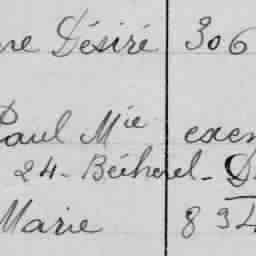 re Désiré 306
Paul Mie exem
24 - Bécherel - D
Marie 8 94